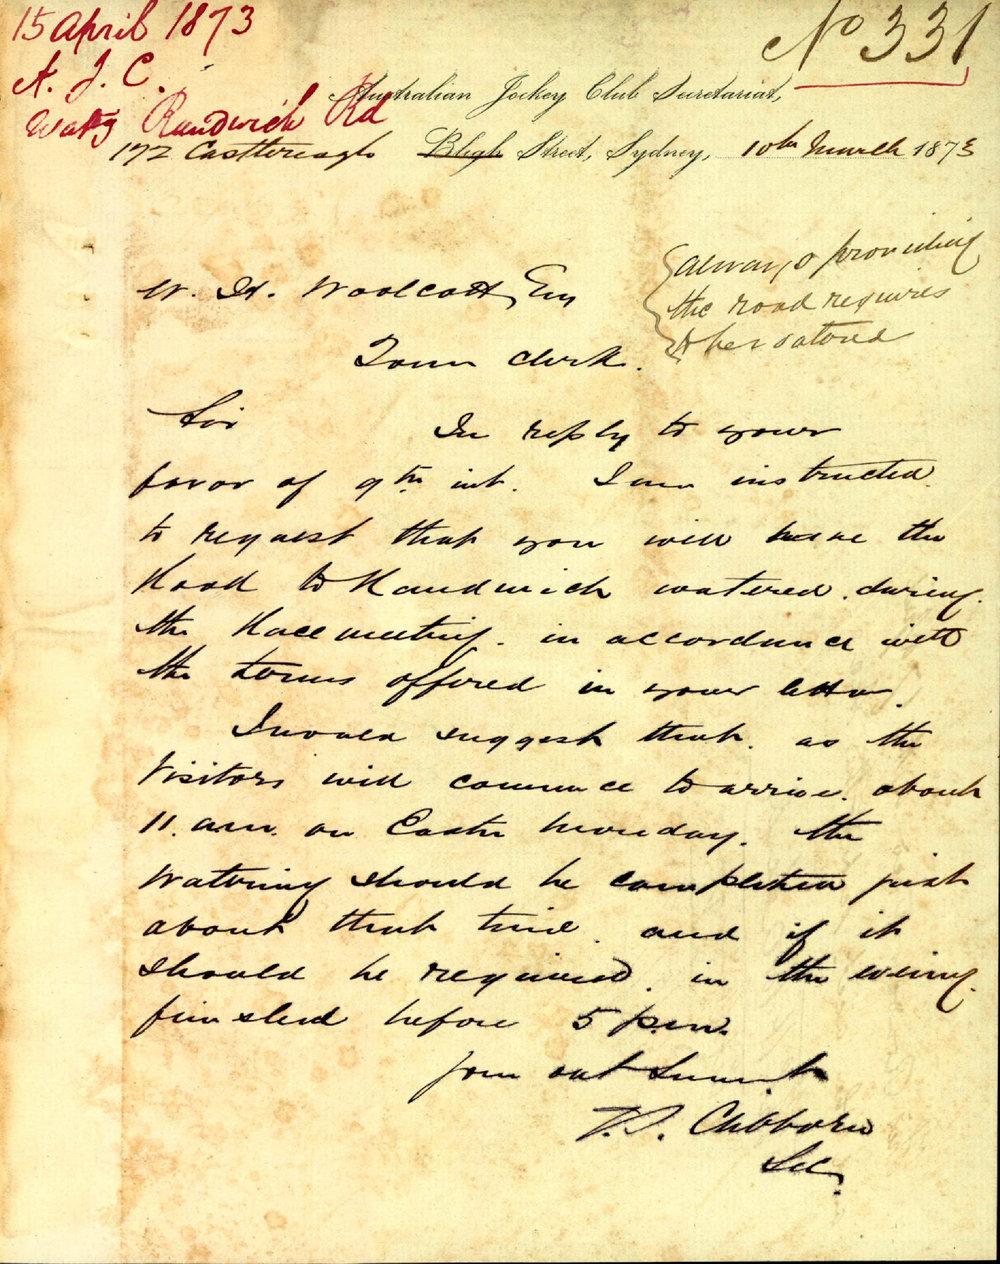 15 April 1873
No 331
A. J. C.
Watg Randwick Rd
Australian Jockey Club Secretariat,
172 Castlereagh Bligh Street, Sydney, 10th March 1873
always providing
the road requires
to be watered
W. H. Woolcott Esq
Town Clerk.
Sir In reply to your
favor of 9th inst. I am instructed
to request that you will have the
Road to Randwick watered during
the Race meeting in accordance with
the terms offered in your letter.
I would suggest that as the
Visitors will commence to arrive about
11. a.m. on Easter Monday. the
watering should be completed just
about that time. and if it
should be required. in the evening
finished before 5 p.m.
Your obt Servant
T. S. Clibborn
Sec.